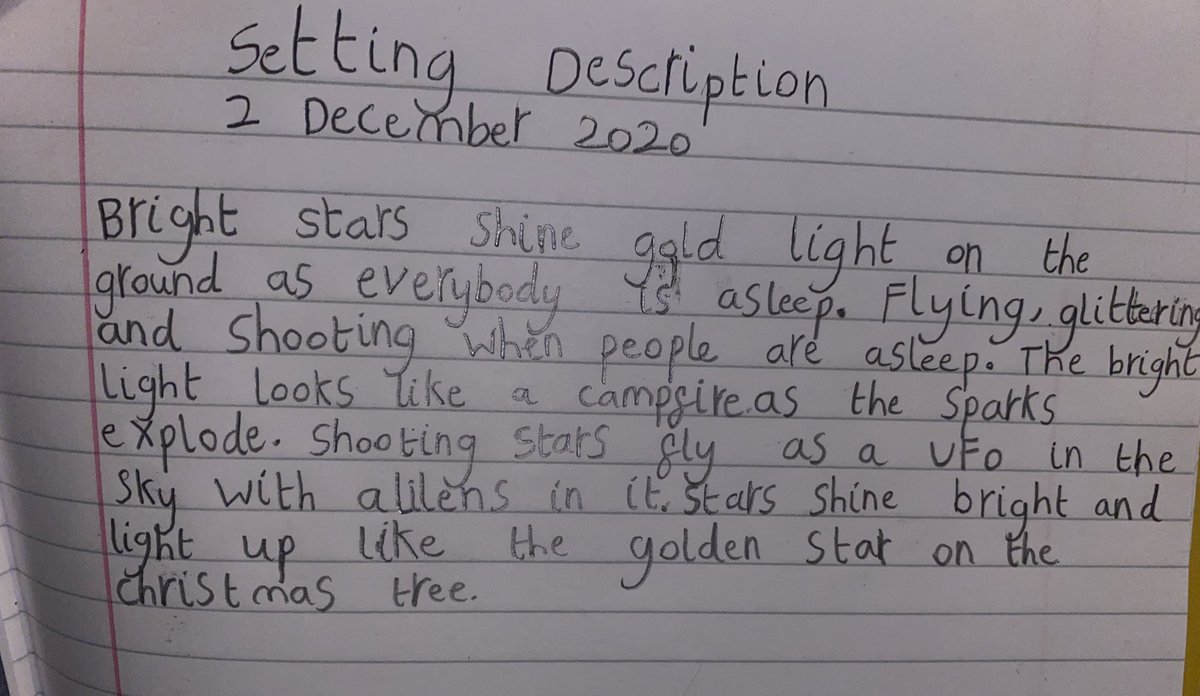 Setting Description
2 December 2020
Bright stars shine gold light on the
ground as everybody is asleep. Flying, glittering
and shooting when people are asleep. The bright
light looks like a campfire.as the sparks
explode. Shooting stars fly as a UFO in the
sky with alilens in it. Stars shine bright and
light up like the golden star on the
christmas tree.